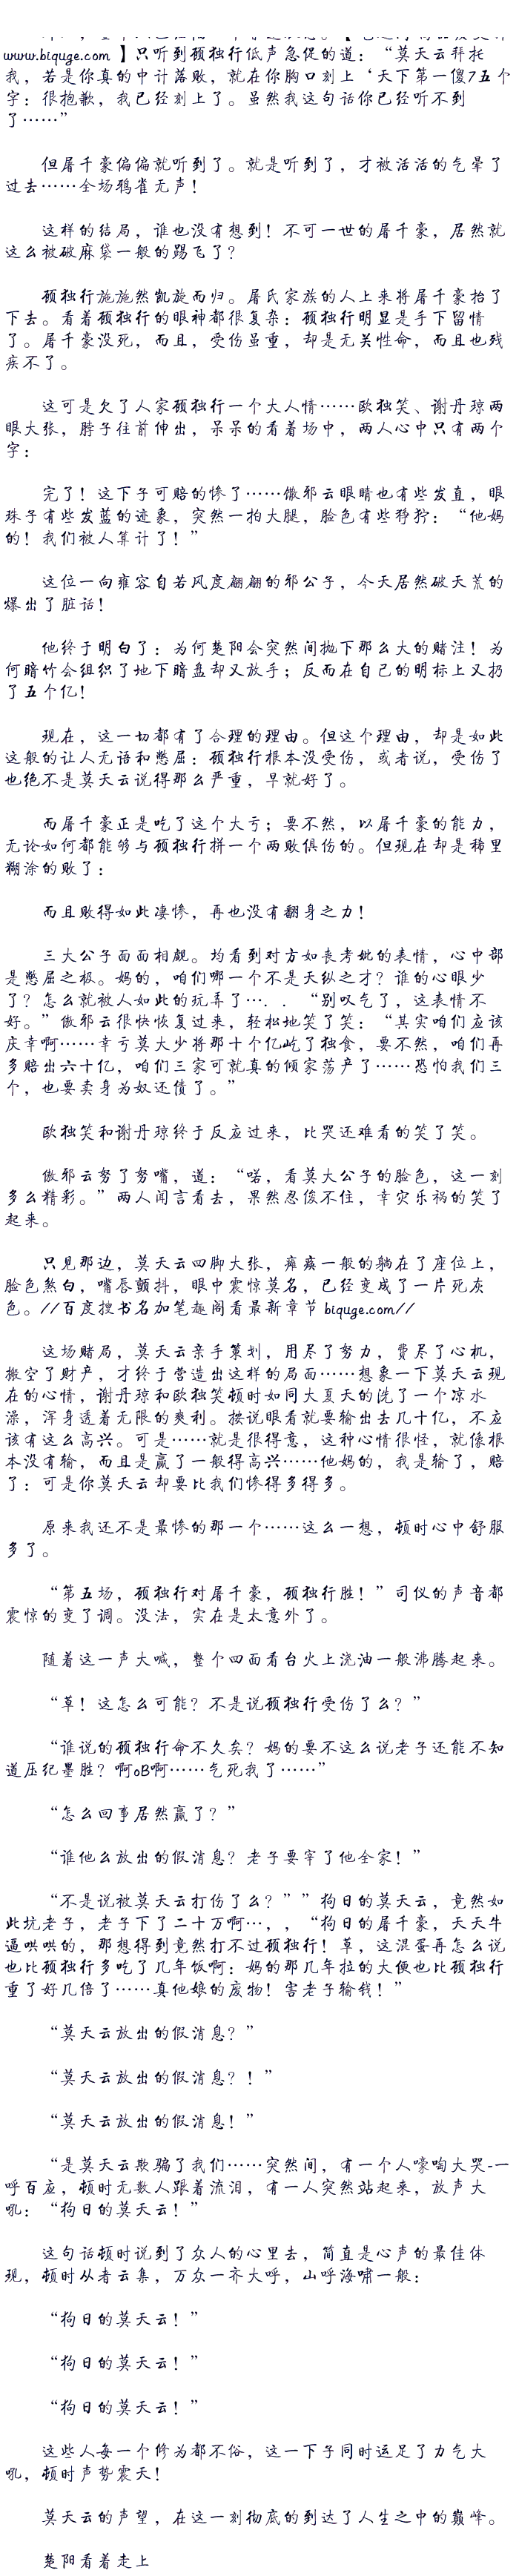 www.biquge.com 】只听到顾独行低声急促的道：“莫天云拜托
我，若是你真的中计落败，就在你胸口刻上‘天下第一傻7五个
字：很抱歉，我已经刻上了。虽然我这句话你已经听不到
了……”
但屠千豪偏偏就听到了。就是听到了，才被活活的气晕了
过去……全场鸦雀无声！
这样的结局，谁也没有想到！不可一世的屠千豪，居然就
这么被破麻袋一般的踢飞了？
顾独行施施然凯旋而归。屠氏家族的人上来将屠千豪抬了
下去。看着顾独行的眼神都很复杂：顾独行明显是手下留情
了。屠千豪没死，而且，受伤虽重，却是无关性命，而且也残
疾不了。
这可是欠了人家顾独行一个大人情……欧独笑、谢丹琼两
眼大张，脖子往前伸出，呆呆的看着场中，两人心中只有两个
字：
完了！这下子可赔的惨了……傲邪云眼睛也有些发直，眼
珠子有些发蓝的迹象，突然一拍大腿，脸色有些狰狞：“他妈
的！我们被人算计了！”
这位一向雍容自若风度翩翩的邪公子，今天居然破天荒的
爆出了脏话！
他终于明白了：为何楚阳会突然间抛下那么大的赌注！为
何暗竹会组织了地下暗盘却又放手；反而在自己的明标上又扔
了五个亿！
现在，这一切都有了合理的理由。但这个理由，却是如此
这般的让人无语和憋屈：顾独行根本没受伤，或者说，受伤了
也绝不是莫天云说得那么严重，早就好了。
而屠千豪正是吃了这个大亏；要不然，以屠千豪的能力，
无论如何都能够与顾独行拼一个两败俱伤的。但现在却是稀里
糊涂的败了：
而且败得如此凄惨，再也没有翻身之力！
三大公子面面相觑。均看到对方如丧考妣的表情，心中都
是憋屈之极。妈的，咱们哪一个不是天纵之才？谁的心眼少
了？怎么就被人如此的玩弄了…．．“别叹气了，这表情不
好。”傲邪云很快恢复过来，轻松地笑了笑：“其实咱们应该
庆幸啊……幸亏莫大少将那十个亿屹了独食，要不然，咱们再
多赔出六十亿，咱们三家可就真的倾家荡产了……恐怕我们三
个，也要卖身为奴还债了。”
欧独笑和谢丹琼终于反应过来，比哭还难看的笑了笑。
傲邪云努了努嘴，道：“喏，看莫大公子的脸色，这一刻
多么精彩。”两人闻言看去，果然忍俊不住，幸灾乐祸的笑了
起来。
只见那边，莫天云四脚大张，瘫痪一般的躺在了座位上，
脸色煞白，嘴唇颤抖，眼中震惊莫名，已经变成了一片死灰
色。//百度搜书名加笔趣阁看最新章节 biquge.com//
这场赌局，莫天云亲手策划，用尽了努力，费尽了心机，
搬空了财产，才终于营造出这样的局面……想象一下莫天云现
在的心情，谢丹琼和欧独笑顿时如同大夏天的洗了一个凉水
澡，浑身透着无限的爽利。按说眼看就要输出去几十亿，不应
该有这么高兴。可是……就是很得意，这种心情很怪，就像根
本没有输，而且是赢了一般得高兴……他妈的，我是输了，赔
了：可是你莫天云却要比我们惨得多得多。
原来我还不是最惨的那一个……这么一想，顿时心中舒服
多了。
“第五场，顾独行对屠千豪，顾独行胜！”司仪的声音都
震惊的变了调。没法，实在是太意外了。
随着这一声大喊，整个四面看台火上浇油一般沸腾起来。
“草！这怎么可能？不是说顾独行受伤了么？”
“谁说的顾独行命不久矣？妈的要不这么说老子还能不知
道压纪墨胜？啊oB啊……气死我了……”
“怎么回事居然赢了？”
“谁他么放出的假消息？老子要宰了他全家！”
“不是说被莫天云打伤了么？””狗日的莫天云，竟然如
此坑老子，老子下了二十万啊…，，“狗日的屠千豪，天天牛
逼哄哄的，那想得到竟然打不过顾独行！草，这混蛋再怎么说
也比顾独行多吃了几年饭啊：妈的那几年拉的大便也比顾独行
重了好几倍了……真他娘的废物！害老子输钱！”
“莫天云放出的假消息？”
“莫天云放出的假消息？！”
“莫天云放出的假消息！”
“是莫天云欺骗了我们……突然间，有一个人嚎啕大哭-一
呼百应，顿时无数人跟着流泪，有一人突然站起来，放声大
吼：“狗日的莫天云！”
这句话顿时说到了众人的心里去，简直是心声的最佳体
现，顿时从者云集，万众一齐大呼，山呼海啸一般：
“狗日的莫天云！”
“狗日的莫天云！”
“狗日的莫天云！”
这些人每一个修为都不俗，这一下子同时运足了力气大
吼，顿时声势震天！
莫天云的声望，在这一刻彻底的到达了人生之中的巅峰。
楚阳看着走上